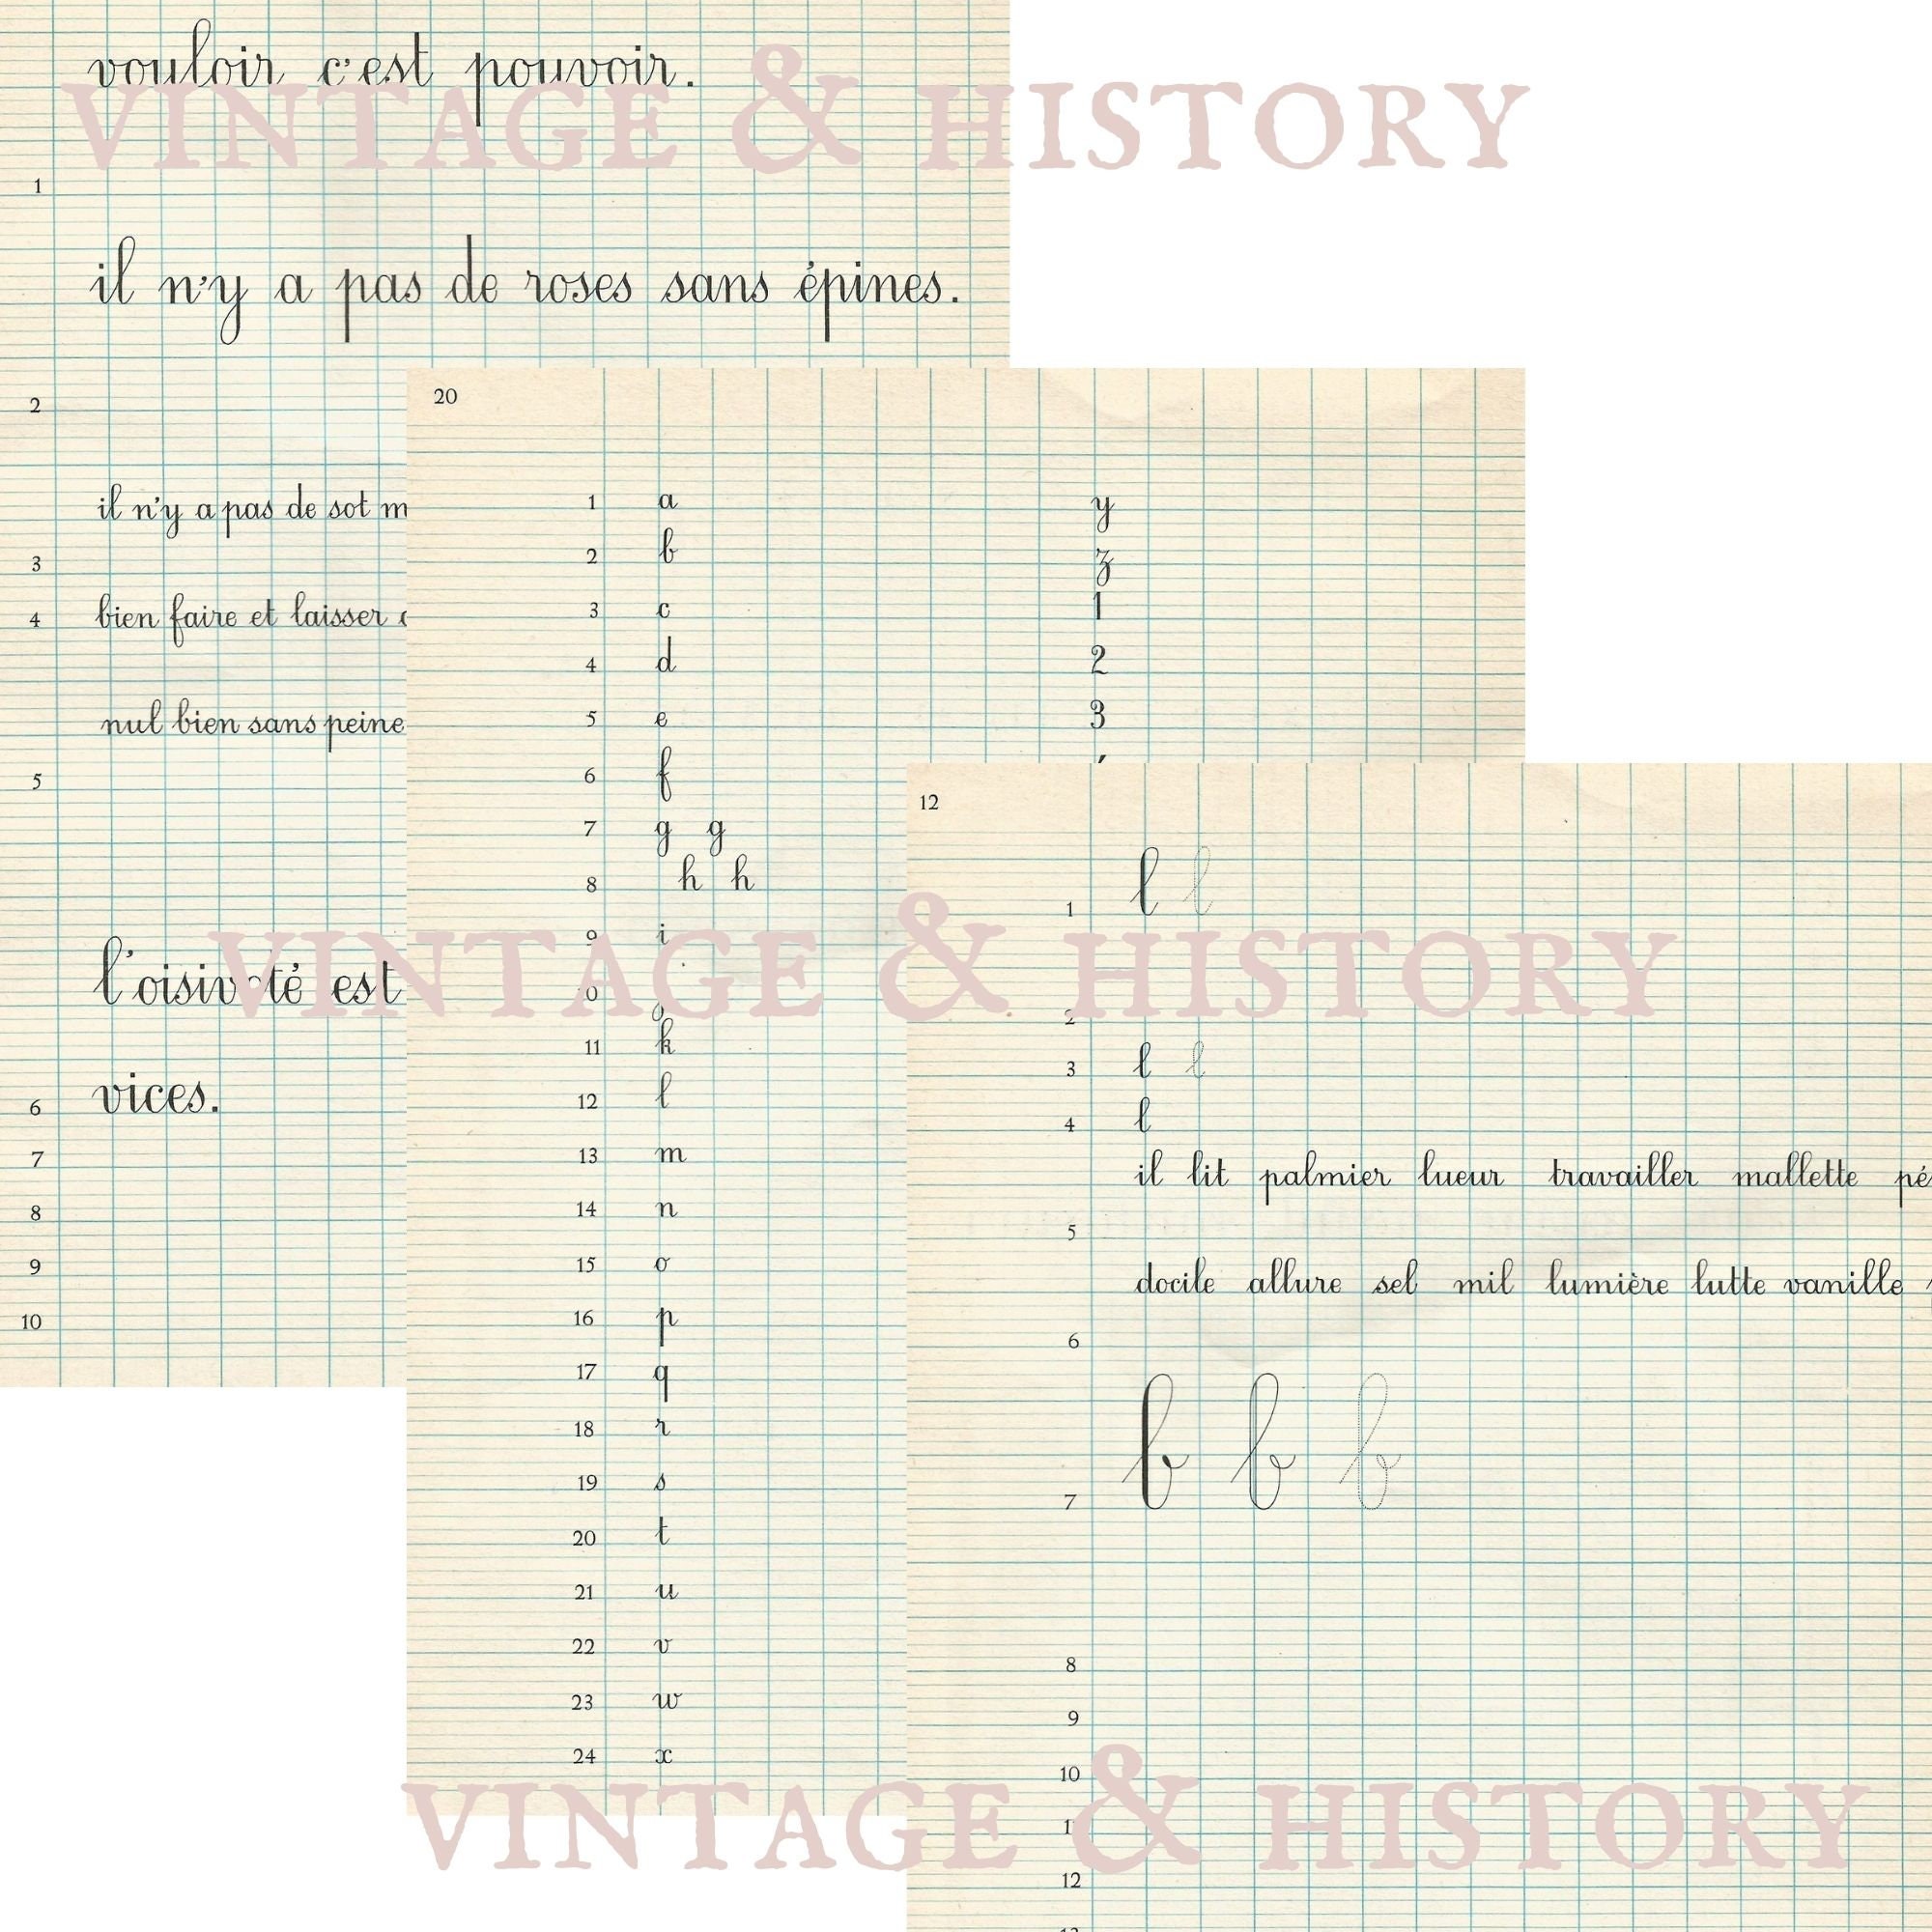 vouloir c'est pouvoir.
VINTAGE & HISTORY
1
il n'y a pas de roses sans épines.
2
il n'y a pas de sot
3
4 bien faire et laisser
nul bien sans peine
5
l'oisiveté est
6 vices.
7
8
9
10
20
1 a
2 b
3 c
4 d
5 e
6 f
7 g g
8 h h
9 i
10 j
11 k
12 l
13 m
14 n
15 o
16 p
17 q
18 r
19 s
20 t
21 u
22 v
23 w
24 x
y
z
1
2
3
12
1 l l
VINTAGE & HISTORY
2
3 l l
4 l
il lit palmier lueur travailler mallette
5
docile allure sel mil lumière lutte vanille
6
7 b b b
8
9
10
VINTAGE & HISTORY
11
12